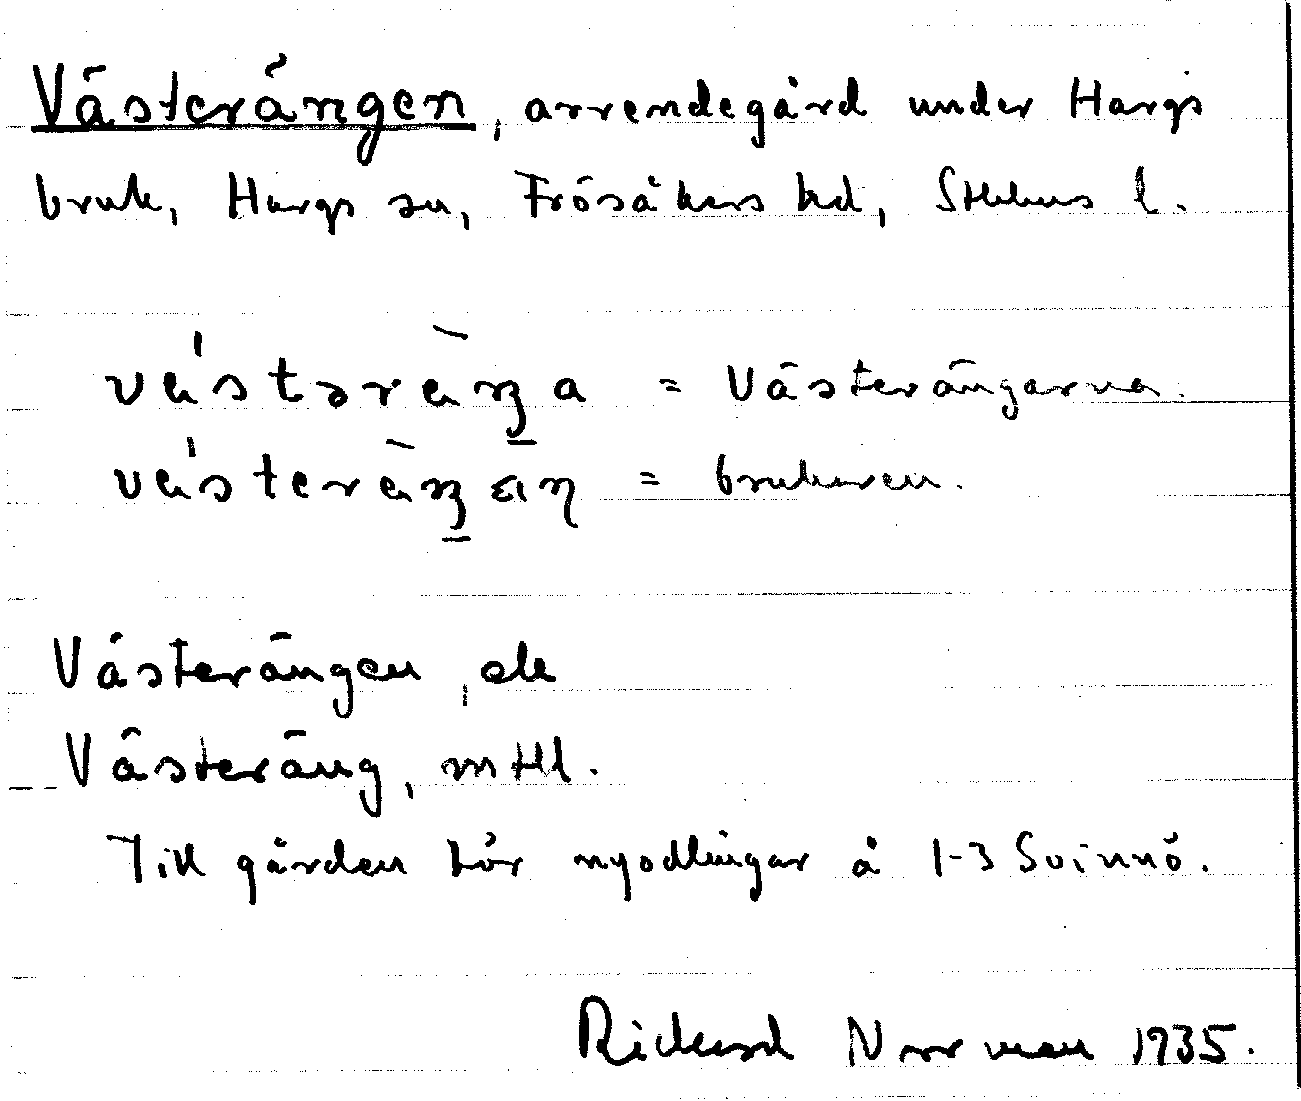 Västerängen, arrendegård under Hargs
bruk, Hargs sn, Frösåkers hd, Sthlms l.
= Västerängarna.
= brukaren.
Västerängen, ek
Västeräng, mtbl.
Till gården hör nyodlingar å 1-3 Svinnö.
Rickard Norrman 1935.